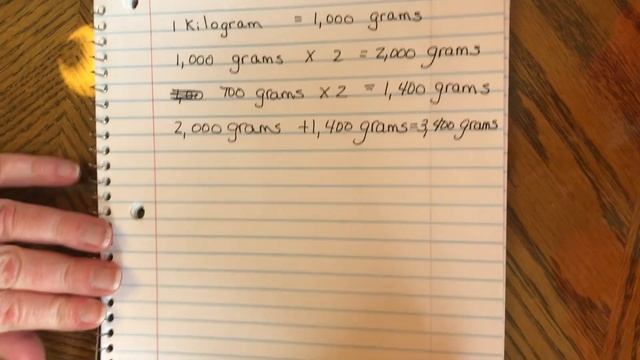 1 Kilogram = 1,000 grams
1,000 grams x 2 = 2,000 grams
700 grams x 2 = 1,400 grams
2,000 grams + 1,400 grams = 3,400 grams